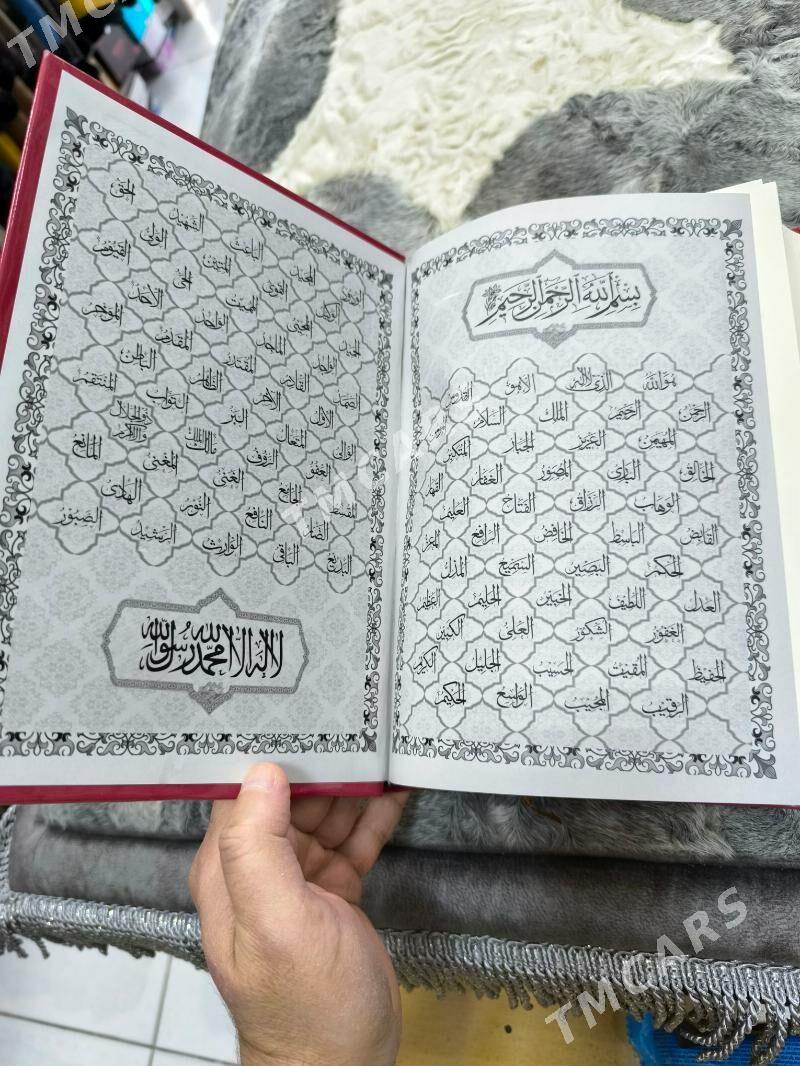 بسم الله الرحمن الرحيم
هو الله الذى لا اله الا هو القدوس
الرحمن الرحيم الملك السلام
المهيمن العزيز الجبار المتكبر
الخالق البارئ المصور الغفار القهار
الوهاب الرزاق الفتاح العليم
القابض الباسط الخافض الرافع المعز
الحكم البصير السميع المذل
العدل اللطيف الخبير الحليم العظيم
الغفور الشكور العلى الكبير
الحفيظ المقيت الحسيب الجليل الكريم
الرقيب المجيب الواسع الحكيم
الودود المجيد الباعث الشهيد الحق
الوكيل القوى المتين الولى
الحميد المحيى المميت الحى القيوم
الواجد الماجد الواحد الاحد
الصمد القادر المقتدر المقدم المؤخر
الاول الاخر الظاهر الباطن
الوالى المتعال البر التواب المنتقم
العفو الرؤف مالك الملك ذو الجلال والاكرام
المقسط الجامع الغنى المغنى المانع
الضار النافع النور الهادى
البديع الباقى الوارث الرشيد الصبور
لا اله الا الله محمد رسول الله
TMCARS
TMCARS
TMCARS